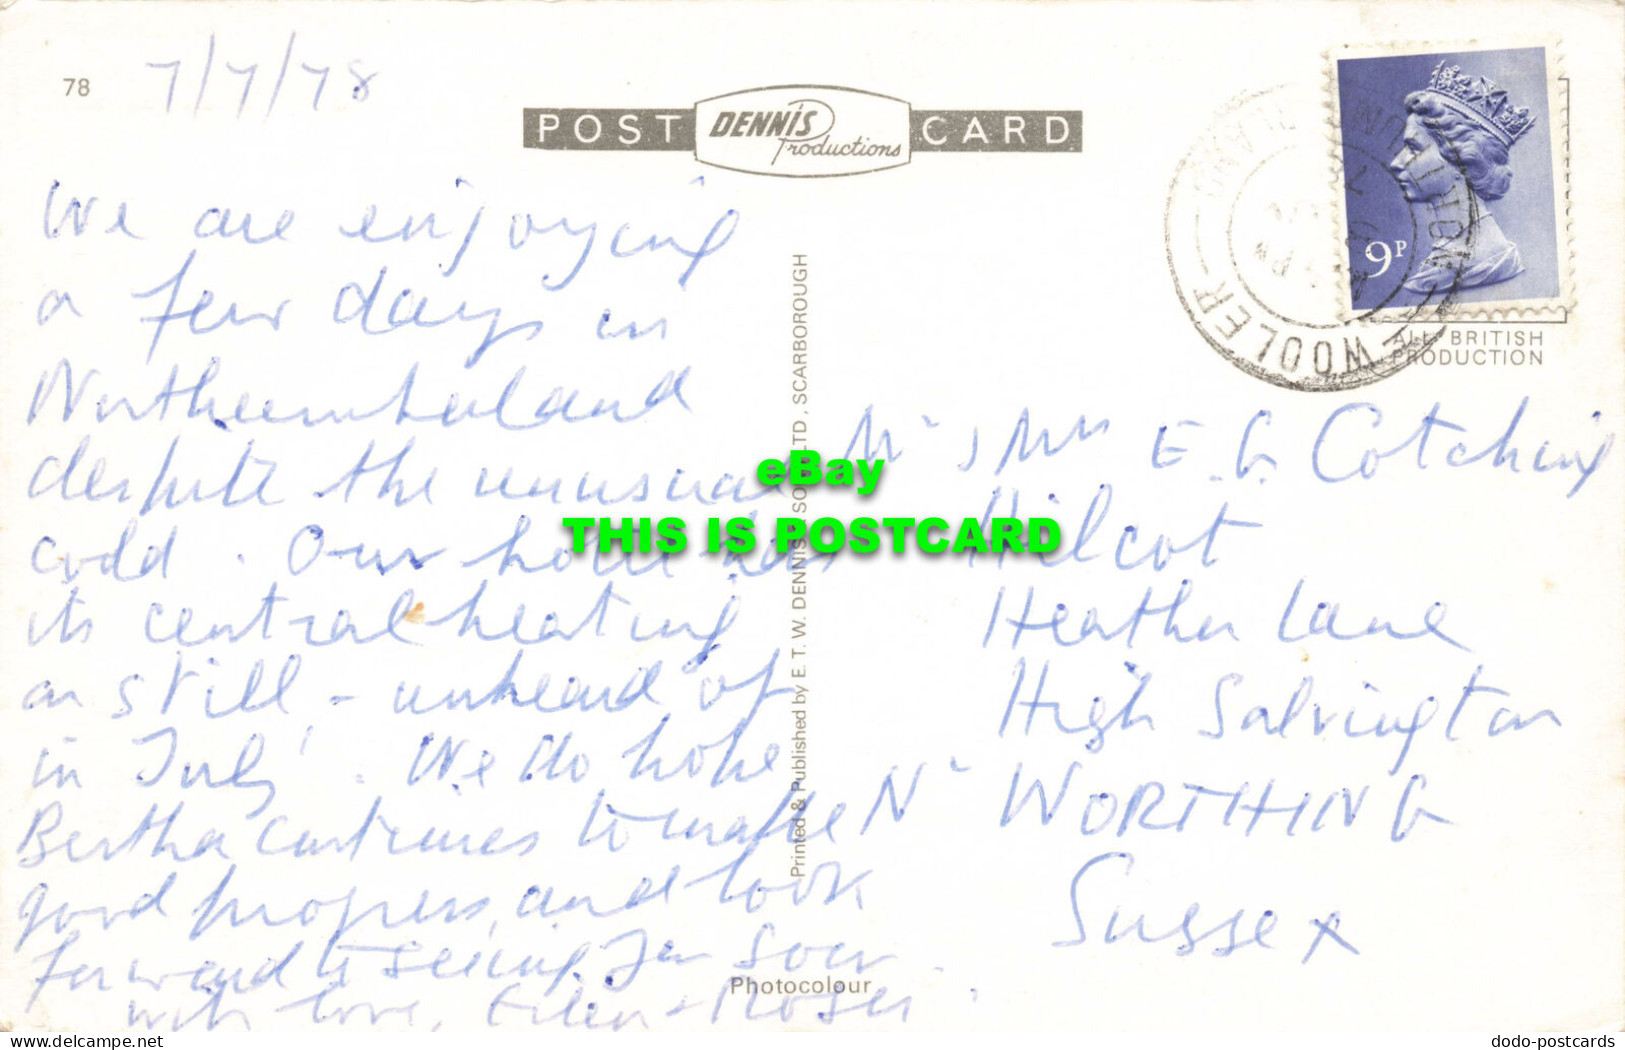 78
7/7/78
POST DENNIS Productions CARD
We are enjoying
a few days in
Northumberland
despite the unusual
cold. Our hotel has
its central heating
on still - unheard of
in July! We do hope
Bertha continues to make
good progress, and look
forward to seeing you soon.
with love, Eileen + Roger.
Printed & Published by E. T. W. DENNIS SO LTD., SCARBOROUGH
Photocolour
9P
WOOLER
ALL BRITISH
PRODUCTION
Mr & Mrs E. G. Cotching
Hilcot
Heather Lane
High Salvington
Nr WORTHING
Sussex
eBay
THIS IS POSTCARD
www.delcampe.net
dodo-postcards